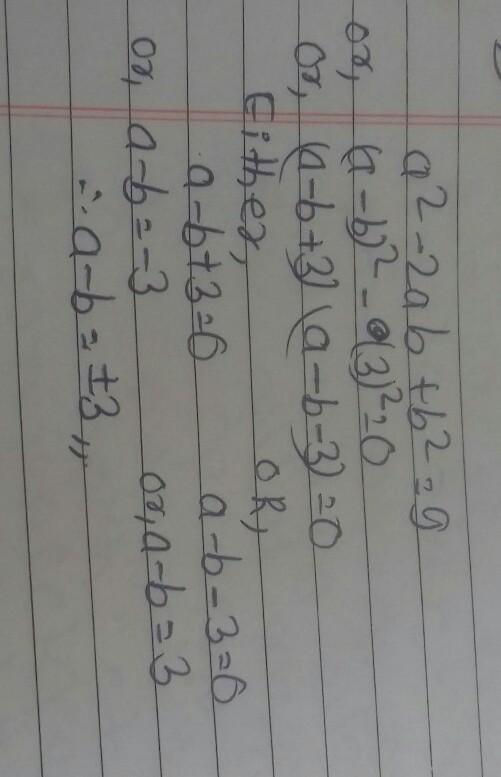 a² - 2ab + b² = 9
or, (a - b)² - (3)² = 0
or, (a - b + 3) (a - b - 3) = 0
Either, OR,
a - b + 3 = 0 a - b - 3 = 0
or, a - b = -3 or, a - b = 3
∴ a - b = ±3,,